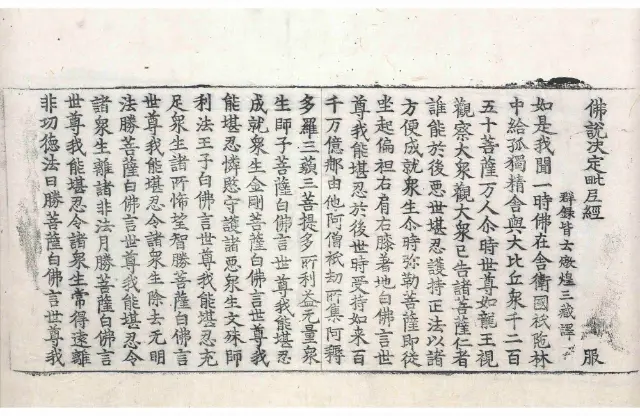 佛說決定毗尼經 服
群錄皆云燉煌三藏譯
如是我聞一時佛在舍衛國祇陁林
中給孤獨精舍與大比丘衆千二百
五十菩薩万人尒時世尊如龍王視
觀察大衆觀大衆已告諸菩薩仁者
誰能於後惡世堪忍護持正法以諸
方便成就衆生尒時弥勒菩薩即從
坐起偏袒右肩右膝著地白佛言世
尊我能堪忍於後世時受持如來百
千万億那由他阿僧祇劫所集阿耨
多羅三藐三菩提多所利益无量衆
生師子菩薩白佛言世尊我能堪忍
成就衆生金剛菩薩白佛言世尊我
能堪忍憐愍守護諸惡衆生文殊師
利法王子白佛言世尊我能堪忍充
足衆生諸所悕望智勝菩薩白佛言
世尊我能堪忍令諸衆生除去无明
法勝菩薩白佛言世尊我能堪忍令
諸衆生離諸非法月勝菩薩白佛言
世尊我能堪忍令諸衆生常得遠離
非功德法日勝菩薩白佛言世尊我